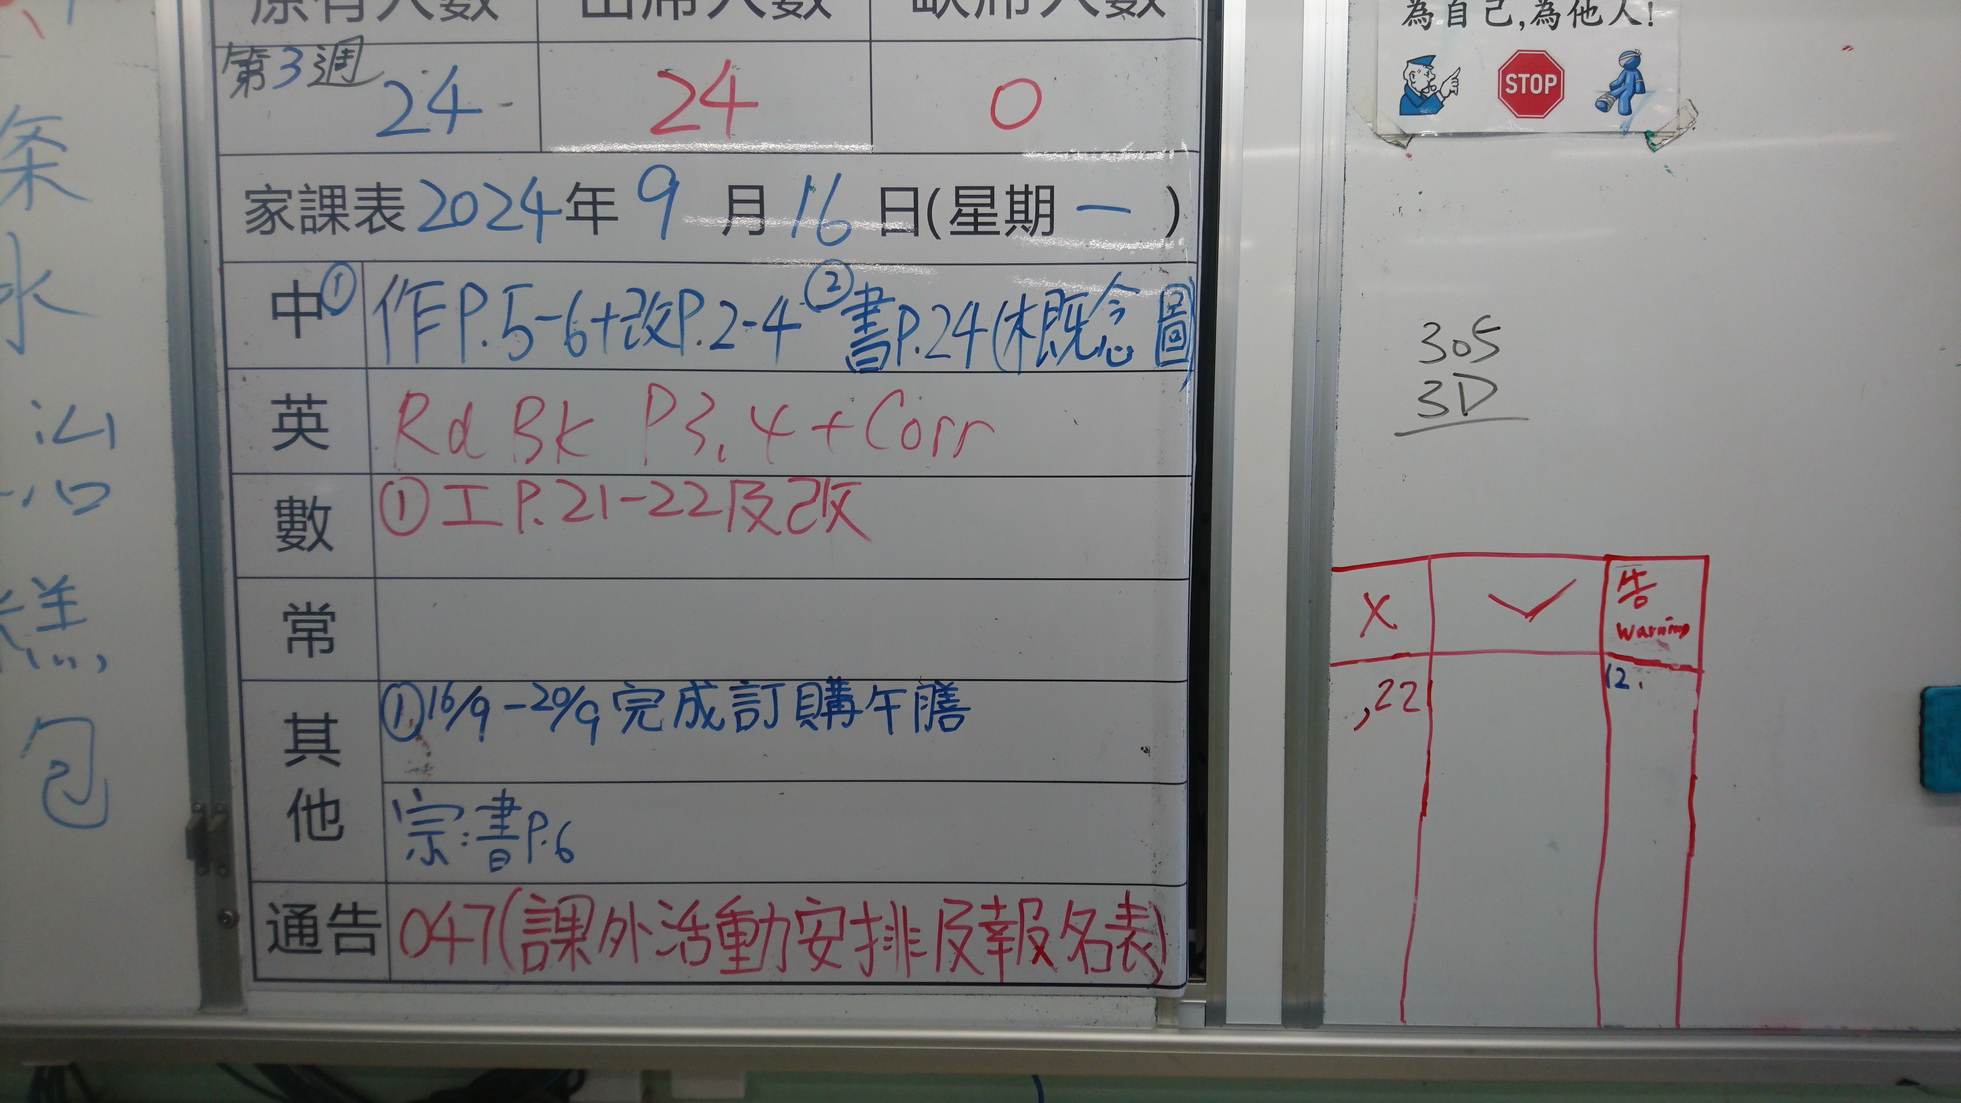 原有人數 出席人數 缺席人數
第3週 24 24 0
家課表2024年9月16日(星期一)
中 ①作P.5-6+改P.2-4 ②書P.24(概念圖)
英 Rd Bk P3,4+Corr
數 ①工P.21-22及改
常
其他 ①16/9-20/9完成訂購午膳
宗:書P.6
通告 047(課外活動安排及報名表)
条
水
沿
糕
包
為自己,為他人!
STOP
305
3D
X ✓ 告
warning
,22 12.